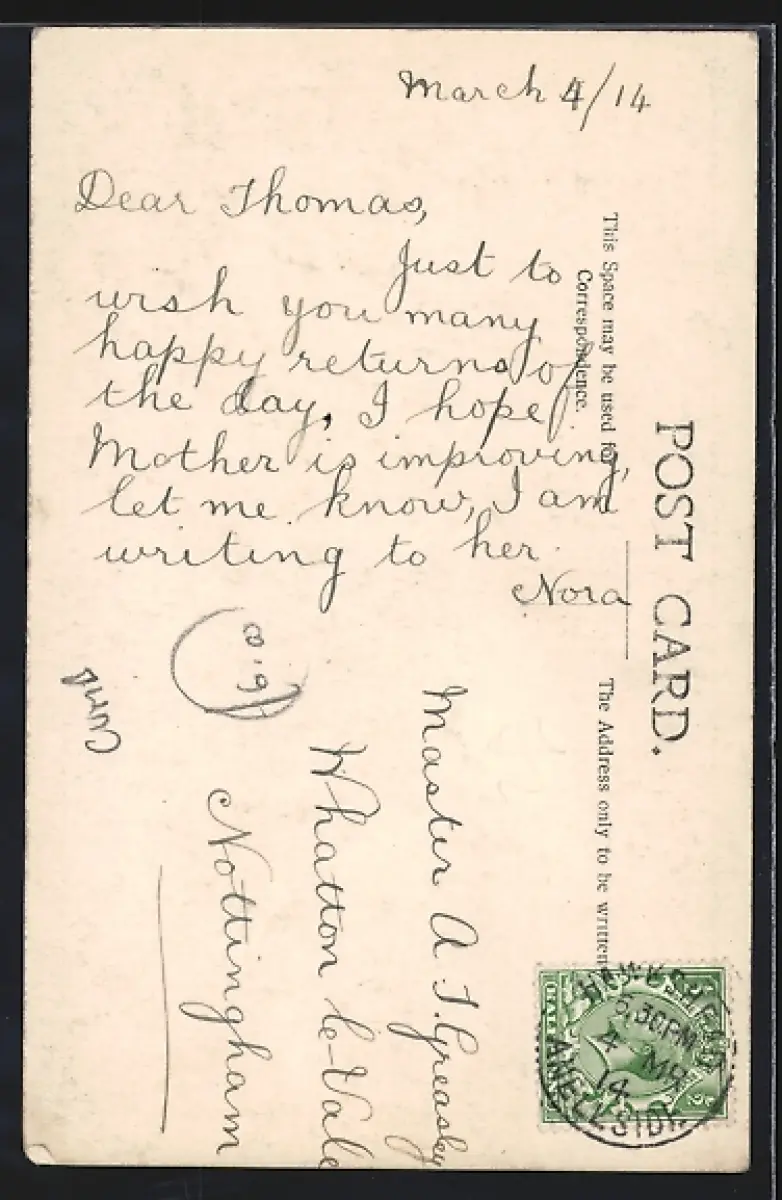 March 4/14
Dear Thomas,
Just to
wish you many
happy returns of
the day, I hope
Mother is improving,
let me know, I am
writing to her.
Nora
POST CARD.
This Space may be used for
Correspondence.
The Address only to be written
Master A T. Greasley
Whatton le-Vale
Nottingham
Cumb
6.30PM
4 MR
14